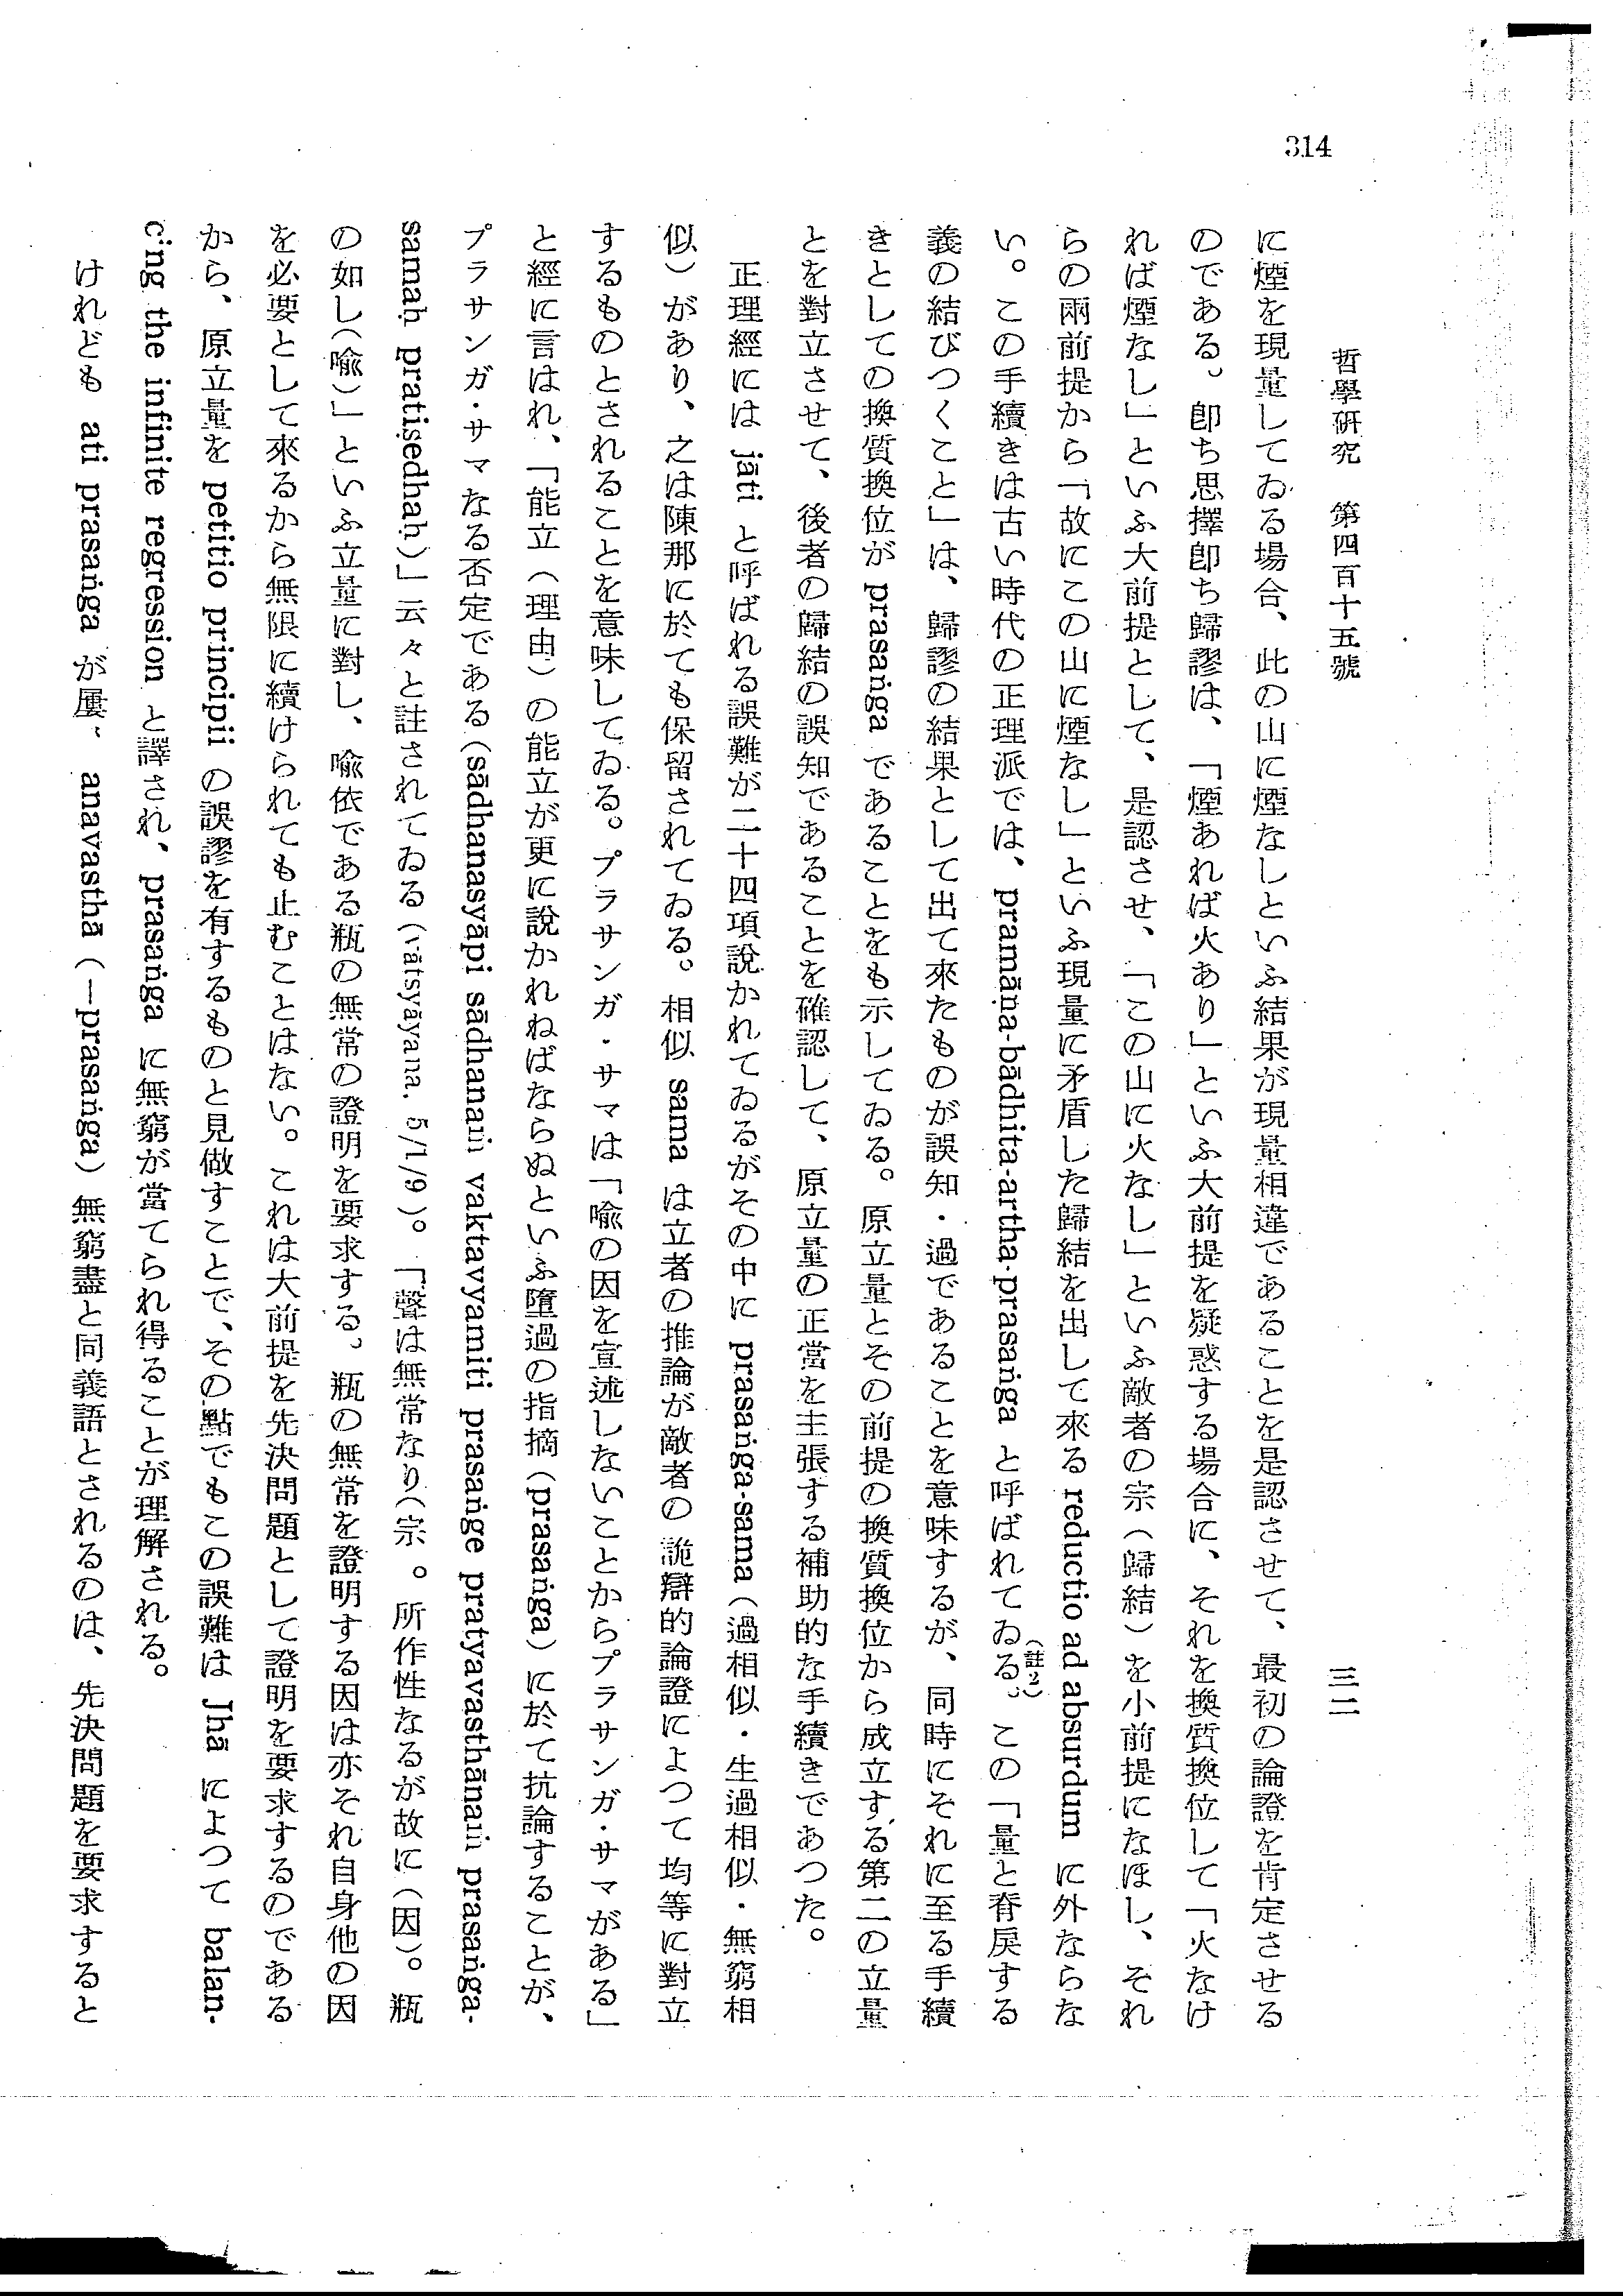 314
哲學硏究　第四百十五號
三二
に煙を現量してゐる場合、此の山に煙なしといふ結果が現量相違であることを是認させて、最初の論證を肯定させる
のである。卽ち思擇卽ち歸謬は、「煙あれば火あり」といふ大前提を疑惑する場合に、それを換質換位して「火なけ
れば煙なし」といふ大前提として、是認させ、「この山に火なし」といふ敵者の宗（歸結）を小前提になほし、それ
らの兩前提から「故にこの山に煙なし」といふ現量に矛盾した歸結を出して來る reductio ad absurdum に外ならな
い。この手續きは古い時代の正理派では、pramāṇa-bādhita-artha-prasaṅga と呼ばれてゐる。（註2）この「量と脊戾する
義の結びつくこと」は、歸謬の結果として出て來たものが誤知・過であることを意味するが、同時にそれに至る手續
きとしての換質換位が prasaṅga であることをも示してゐる。原立量とその前提の換質換位から成立する第二の立量
とを對立させて、後者の歸結の誤知であることを確認して、原立量の正當を主張する補助的な手續きであつた。
正理經には jāti と呼ばれる誤難が二十四項說かれてゐるがその中に prasaṅga-sama（過相似・生過相似・無窮相
似）があり、之は陳那に於ても保留されてゐる。相似 sama は立者の推論が敵者の詭辯的論證によつて均等に對立
するものとされることを意味してゐる。プラサンガ・サマは「喩の因を宣述しないことからプラサンガ・サマがある」
と經に言はれ、「能立（理由）の能立が更に說かれねばならぬといふ墮過の指摘（prasaṅga）に於て抗論することが、
プラサンガ・サマなる否定である（sādhanasyāpi sādhanaṁ vaktavyamiti prasaṅge pratyavasthānaṁ prasaṅga-
samaḥ pratiṣedhaḥ）」云々と註されてゐる（vātsyāyana. 5/1/9）。「聲は無常なり（宗。所作性なるが故に（因）。瓶
の如し（喩）」といふ立量に對し、喩依である瓶の無常の證明を要求する。瓶の無常を證明する因は亦それ自身他の因
を必要として來るから無限に續けられても止むことはない。これは大前提を先決問題として證明を要求するのである
から、原立量を petitio principii の誤謬を有するものと見做すことで、その點でもこの誤難は Jhā によつて balan-
cing the infinite regression と譯され、prasaṅga に無窮が當てられ得ることが理解される。
けれども ati prasaṅga が屢、anavasthā（—prasaṅga）無窮盡と同義語とされるのは、先決問題を要求すると